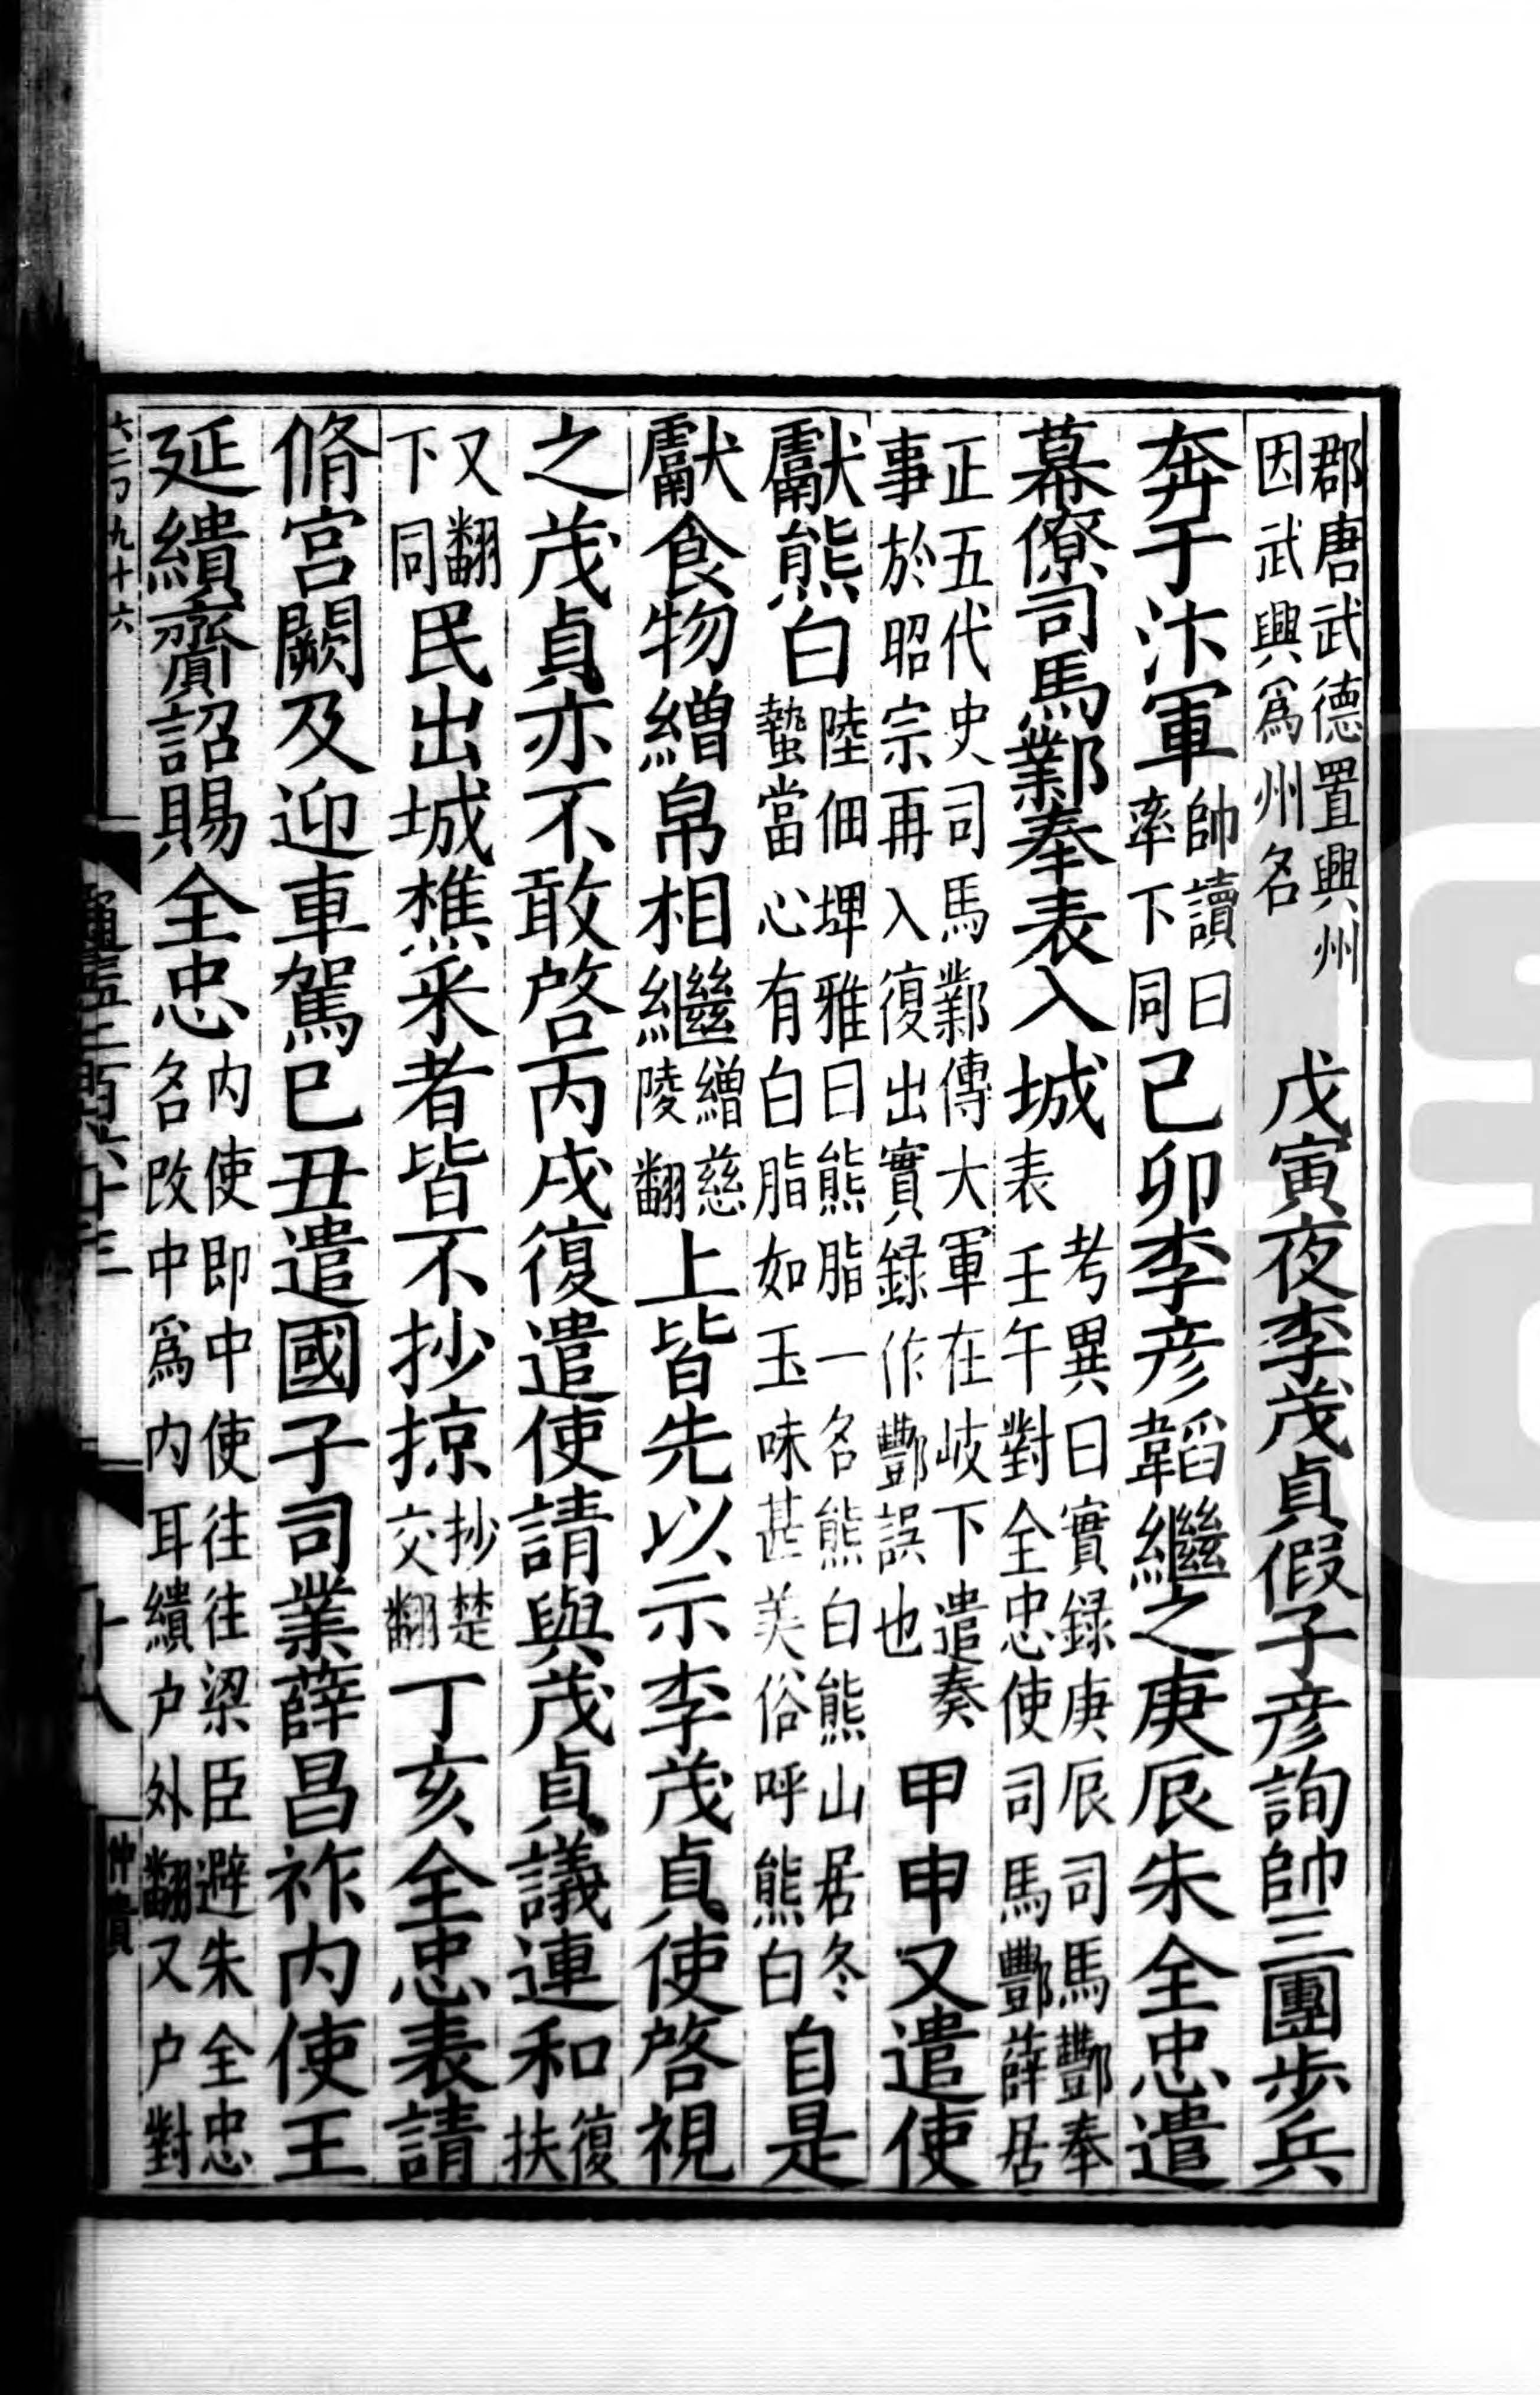 郡唐武德置興州因武興爲州名　戊寅夜李茂貞假子彦詢帥三團步兵
奔于汴軍帥讀曰率下同己卯李彦韜繼之庚辰朱全忠遣
幕僚司馬鄴奉表入城考異曰實録庚辰司馬酆奉表　壬午對全忠使司馬酆薛居
正五代史司馬鄴傳大軍在岐下遣奏事於昭宗再入復出實録作酆誤也　甲申又遣使
獻熊白陸佃埤雅曰熊脂一名熊白熊山居冬蟄當心有白脂如玉味甚美俗呼熊白自是
獻食物繒帛相繼繒慈陵翻上皆先以示李茂貞使啓視
之茂貞亦不敢啓丙戌復遣使請與茂貞議連和復扶
又翻下同民出城樵采者皆不抄掠抄楚交翻丁亥全忠表請
脩宮闕及迎車駕己丑遣國子司業薛昌祚内使王
延繢齎詔賜全忠内使即中使往往梁臣避朱全忠名改中爲内耳繢户外翻又户對
六二刀九十六
十八